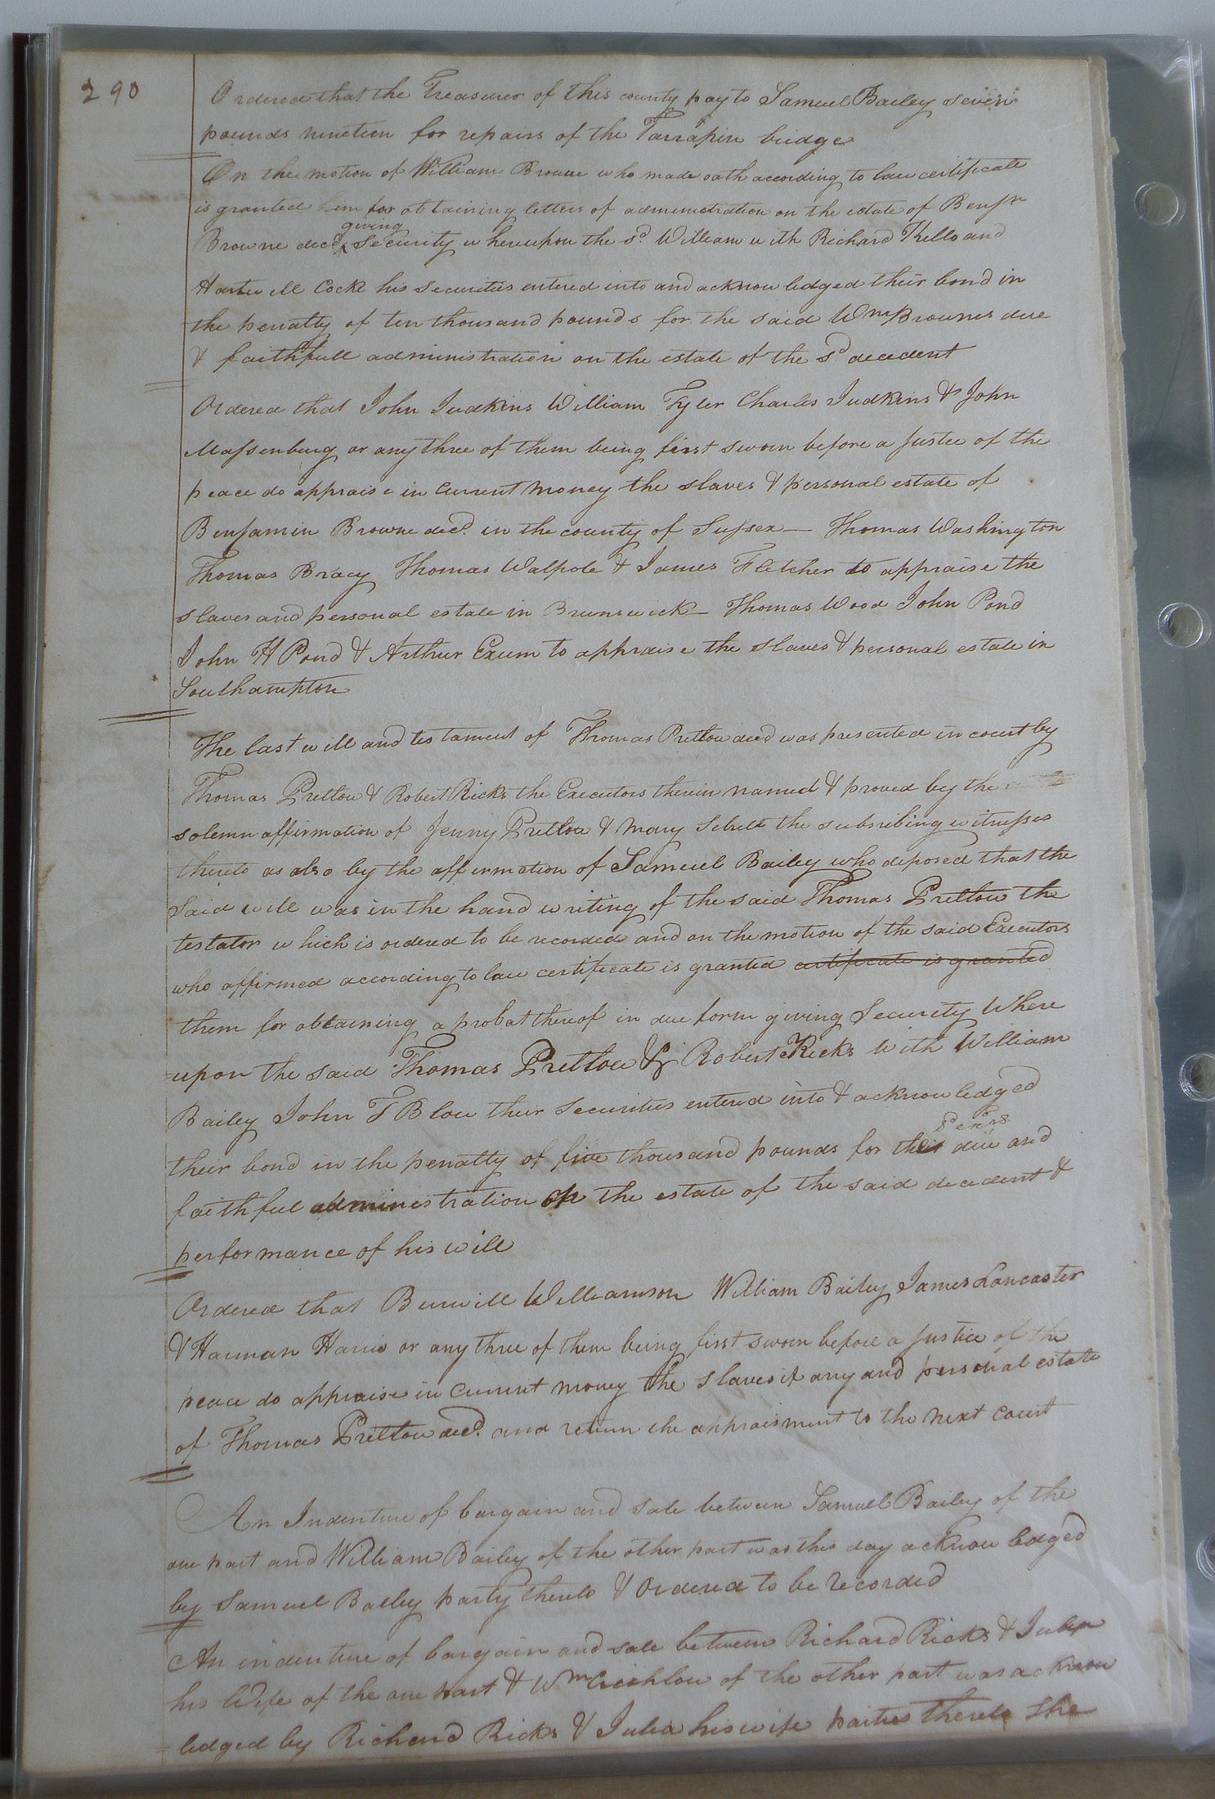 290
Ordered that the Treasurer of this county pay to Samuel Bailey seven
pounds nineteen for repairs of the Tarrapin bridge
On the motion of William Browne who made oath according to law certificate
is granted him for obtaining letters of administration on the estate of Benjn
Browne decd giving security whereupon the sd William with Richard Kello and
Hartwell Cocke his securities entered into and acknowledged their bond in
the penalty of ten thousand pounds for the said Wm Brownes due
& faithfull administration on the estate of the sd decedent
Ordered that John Judkins William Tyler Charles Judkins & John
Massenburg or any three of them being first sworn before a Justce of the
peace do appraise in Current Money the slaves & personal estate of
Benjamin Browne decd. in the county of Sussex — Thomas Washington
Thomas Bracy Thomas Walpole & James Fletcher to appraise the
slaves and personal estate in Brunswick — Thomas Wood John Pond
John H Pond & Arthur Exum to appraise the slaves & personal estate in
Southampton
The last will and testament of Thomas Pretlow decd was presented in court by
Thomas Pretlow & Robert Ricks the Executors therein named & proved by the
solemn affirmation of Jenny Pretlow & Mary the subsribing witnesses
thereto as also by the affirmation of Samuel Bailey who deposed that the
said will was in the hand writing of the said Thomas Pretlow the
testator which is ordered to be recorded and on the motion of the said Executors
who affirmed according to law certificate is granted certificate is granted
them for obtaining a probat thereof in due form giving Security Where
=upon the said Thomas Pretlow & Robert Ricks With William
Bailey John T Blow their Securities entered into & acknowledged
their bond in the penalty of five thousand pounds for the sd Exrs due and
faithful administration on the estate of the said decedent &
performance of his will
Ordered that Burwill Williamson William Bailey James Lancaster
& Harman Harris or any three of them being first sworn before a Justice of the
peace do appraise in Current money the slaves if any and personal estate
of Thomas Pretlow decd. and return the appraisment to the next Court
An Indenture of bargain and sale between Samuel Bailey of the
one part and William Bailey of the other part was this day acknowledged
by Samuel Bailey party thereto & Ordered to be recorded
An indenture of bargain and sale between Richard Ricks & Julia
his Wife of the one part & Wm Crichlow of the other part was acknow
=ledged by Richard Ricks & Julia his wife parties thereto she